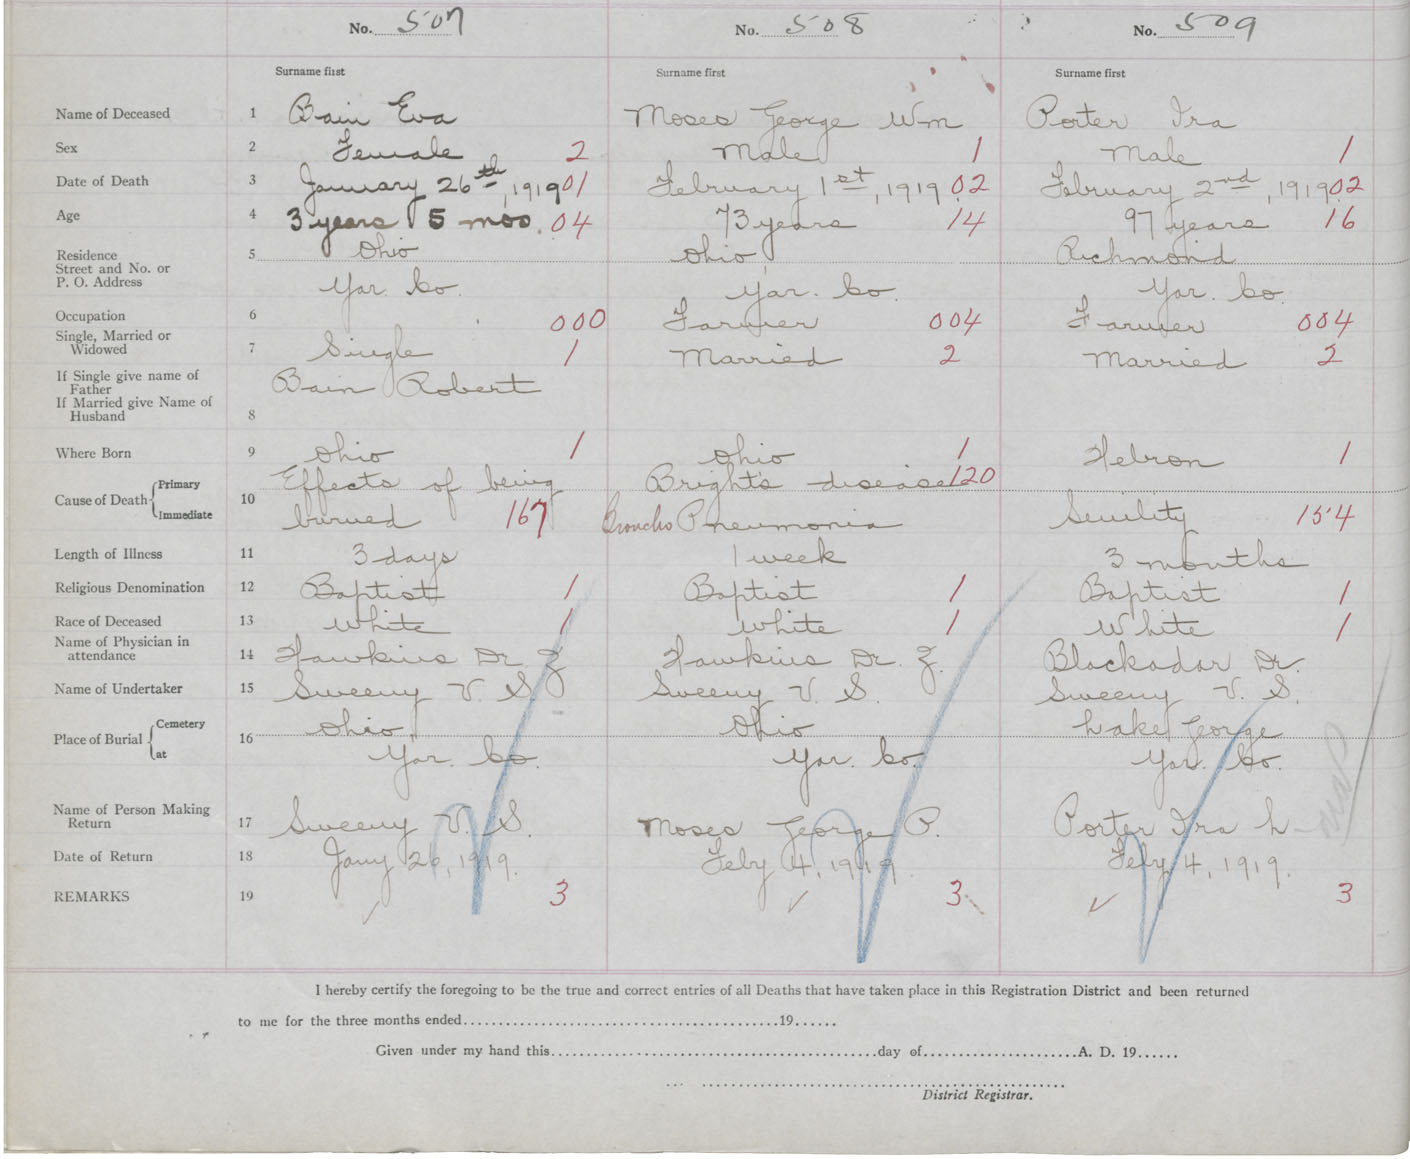 No. 507 No. 508 No. 509
Surname first Surname first Surname first
Name of Deceased 1 Bain Eva Moses George Wm Porter Ira
Sex 2 Female 2 Male 1 Male 1
Date of Death 3 January 26th, 1919 01 February 1st, 1919 02 February 2nd, 1919 02
Age 4 3 years 5 mos. 04 73 years 14 97 years 16
Residence 5 Ohio Ohio Richmond
Street and No. or
P. O. Address Yar. Co. Yar. Co. Yar. Co.
Occupation 6 000 Farmer 004 Farmer 004
Single, Married or
Widowed 7 Single 1 Married 2 Married 2
If Single give name of
Father Bain Robert
If Married give Name of
Husband 8
Where Born 9 Ohio 1 Ohio 1 Hebron 1
Primary Effects of being Bright's disease 120
Cause of Death 10
Immediate burned 167 Broncho Pneumonia Senility 154
Length of Illness 11 3 days 1 week 3 months
Religious Denomination 12 Baptist 1 Baptist 1 Baptist 1
Race of Deceased 13 White 1 White 1 White 1
Name of Physician in
attendance 14 Hawkins Dr. Z Hawkins Dr. Z. Blackadar Dr.
Name of Undertaker 15 Sweeny V. S. Sweeny V. S. Sweeny V. S.
Cemetery Ohio Ohio Lake George
Place of Burial 16
at Yar. Co. Yar. Co. Yar. Co.
Name of Person Making
Return 17 Sweeny V. S. Moses George P. Porter Ira L
Date of Return 18 Jany 26, 1919. Feby 4, 1919 Feby 4, 1919.
REMARKS 19 3 3 3
I hereby certify the foregoing to be the true and correct entries of all Deaths that have taken place in this Registration District and been returned
to me for the three months ended..............................................19......
Given under my hand this...............................................day of......................A. D. 19......
District Registrar.